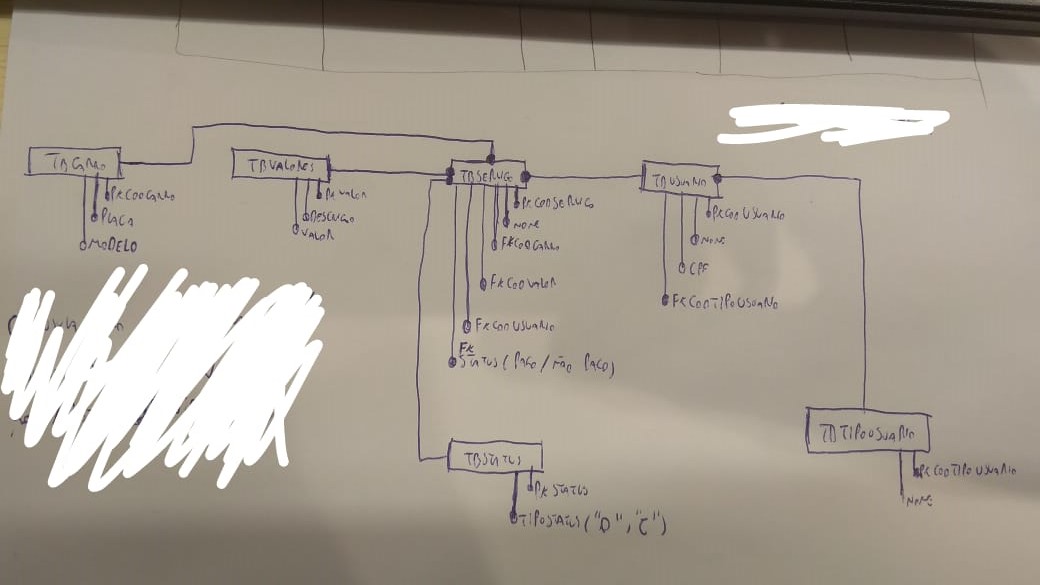 TBCARRO
PKCODCARRO
PLACA
MODELO
TBVALORES
PKVALOR
DESCRICAO
VALOR
TBSERVICO
PKCODSERVICO
NOME
FKCODCARRO
FKCODVALOR
FKCODUSUARIO
FK
STATUS (PAGO / NÃO PAGO)
TBUSUARIO
PKCODUSUARIO
NOME
CPF
FKCODTIPOUSUARIO
TBSTATUS
PKSTATUS
TIPOSTATUS ("D", "C")
TBTIPOUSUARIO
PKCODTIPOUSUARIO
NOME